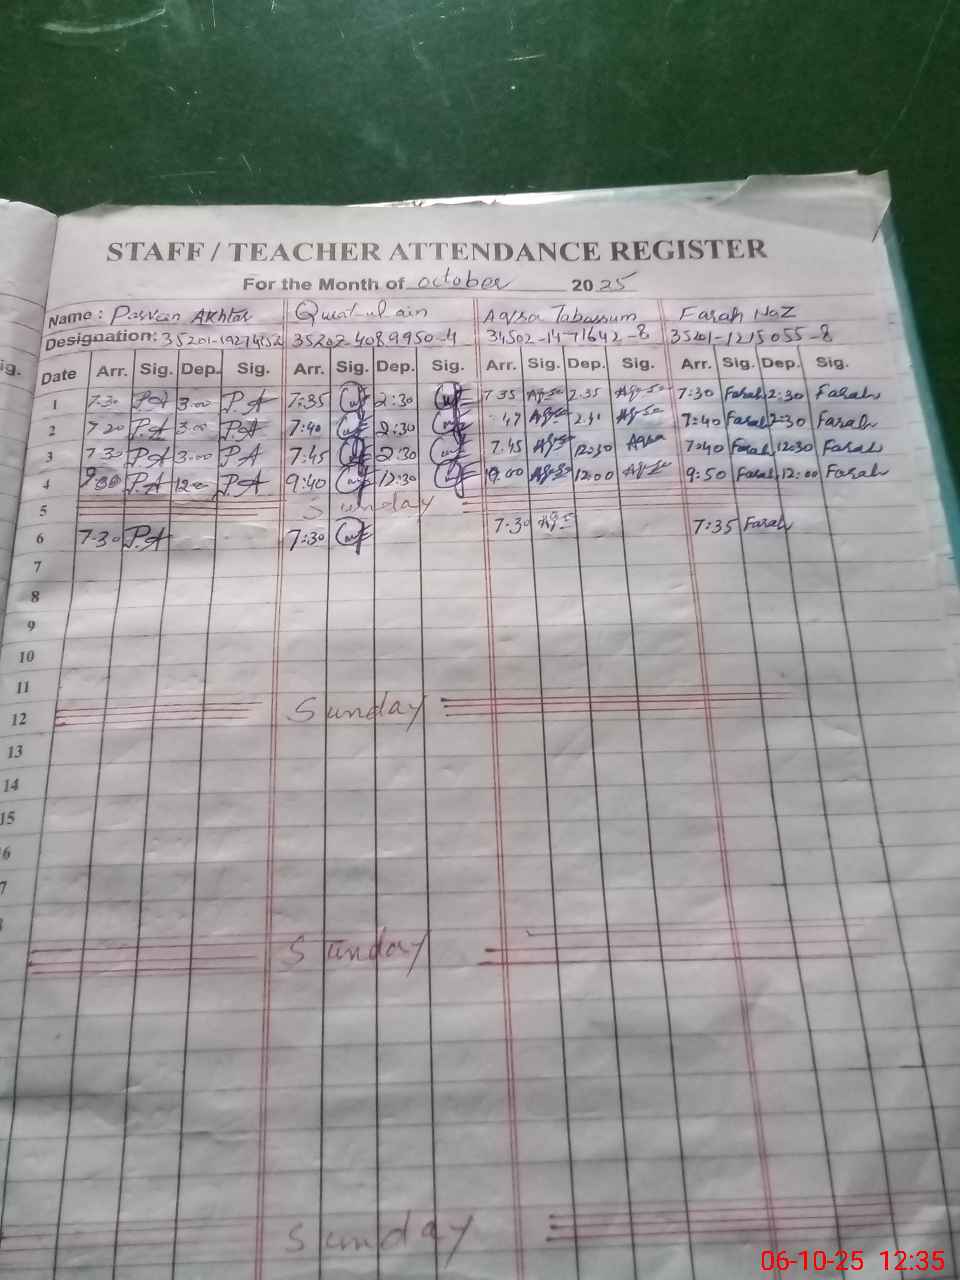 STAFF / TEACHER ATTENDANCE REGISTER
For the Month of october 2025
Name : Parveen Akhtar Quratulain Aqsa Tabassum Farah NaZ
Designation: 35202-4089950-4 34502-1471642-8 35201-1215055-8
ig.
Date Arr. Sig. Dep. Sig. Arr. Sig. Dep. Sig. Arr. Sig. Dep. Sig. Arr. Sig. Dep. Sig.
1 7.30 P.A 3.00 P.A 7:35 2:30 7 35 2.35 7:30 Farah 2:30 Farah
2 7.20 P.A 3.00 P.A 7:40 2:30 2.41 7:40 Farah 2:30 Farah
3 7.30 P.A 3.00 P.A 7:45 2:30 7.45 12:30 Aqsa 7:40 Farah 12:30 Farah
4 P.A P.A 9:40 12:30 12:00 9:50 Farah 12:00 Farah
5 Sunday
6 7.30 P.A 7:30 7.30 7:35 Farah
7
8
9
10
11
12 Sunday
13
14
15
6
7
Sunday
Sunday
06-10-25 12:35